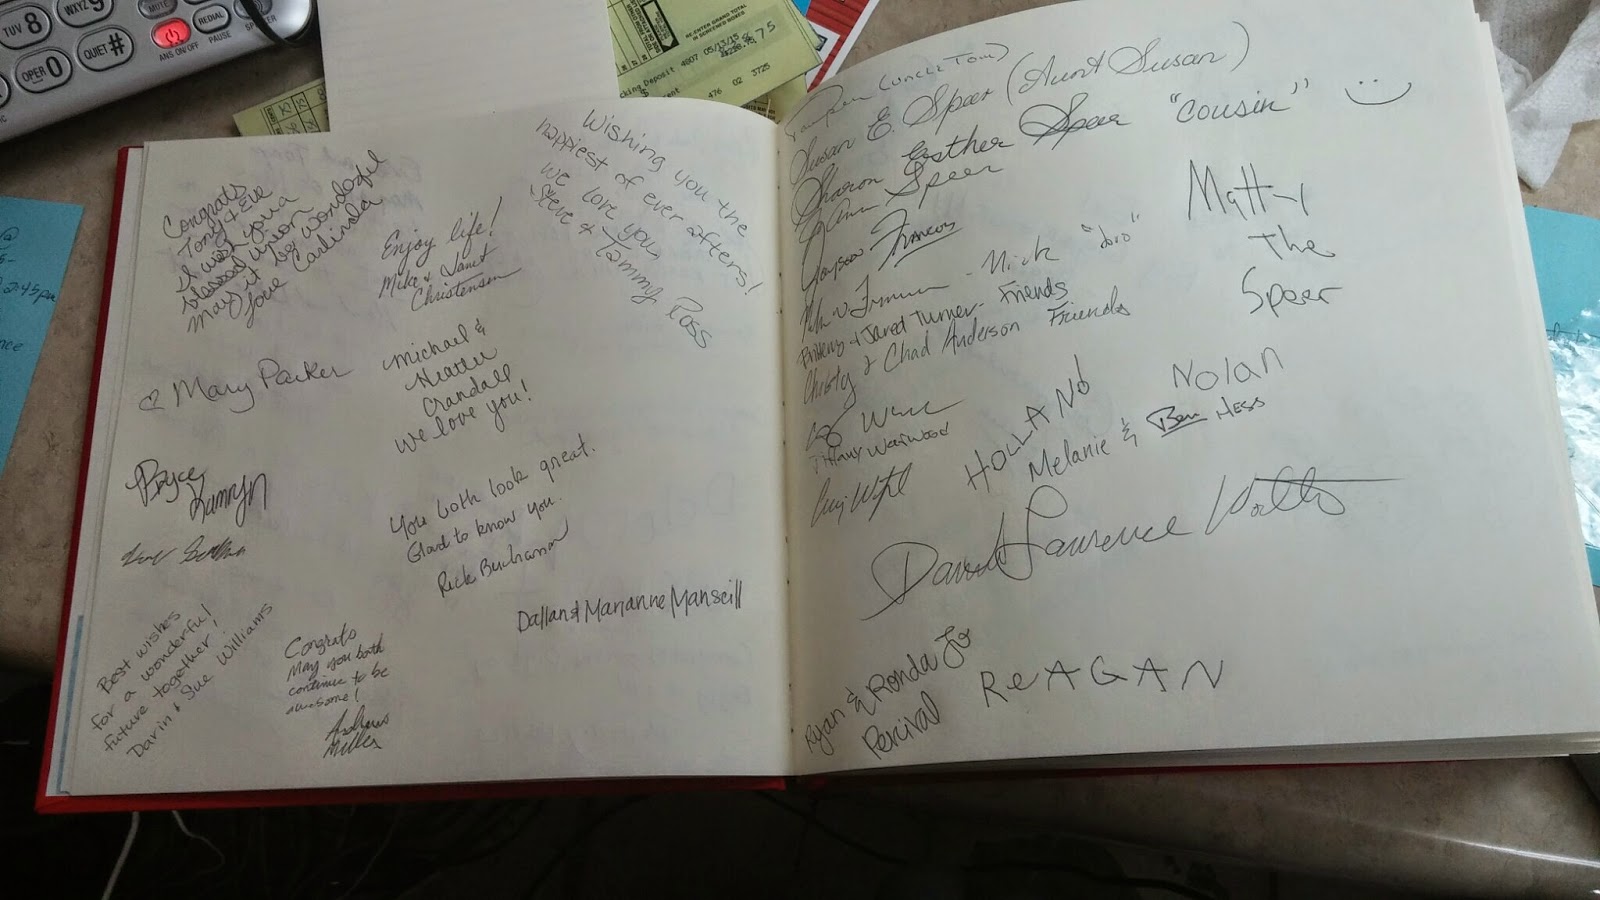 TUV 8
WXYZ 9
MUTE
OPER 0
QUIET #
ANS ON/OFF
PAUSE
REDIAL
SPEAKER
RE-ENTER GRAND TOTAL
IN SCREENED BOXES
Deposit 4807 05/13/15
75
476 02 3725
2:45pm
Congrats
Tony & Eve
I wish you a
blessed union
may it be wonderful
love
Carlinda
Enjoy life!
Mike & Janet
Christensen
Wishing you the
happiest of ever afters!
We love you,
Steve & Tammy Poss
♡ Mary Parker
Michael &
Heather
Crandall
We love you!
Bryce
Kamryn
You both look great.
Glad to know you.
Rick Buchanan
Dallan & Marianne Manscill
Best wishes
for a wonderful
future together!
Darin & Sue Williams
Congrats
May you both
continue to be
awesome!
Andrew
Miller
(Uncle Tom)
Susan E. Speer (Aunt Susan)
Sharon Esther Speer "Cousin" :)
Speer
Francom
Nick "bro"
Brittany & Jared Turner - Friends
Christy & Chad Anderson Friends
Matty
The
Speer
Tiffany
HOLLAND
Nolan
Melanie & Ben Hess
David Lawrence
Ryan & Ronda Jo
Percival
ReAGAN